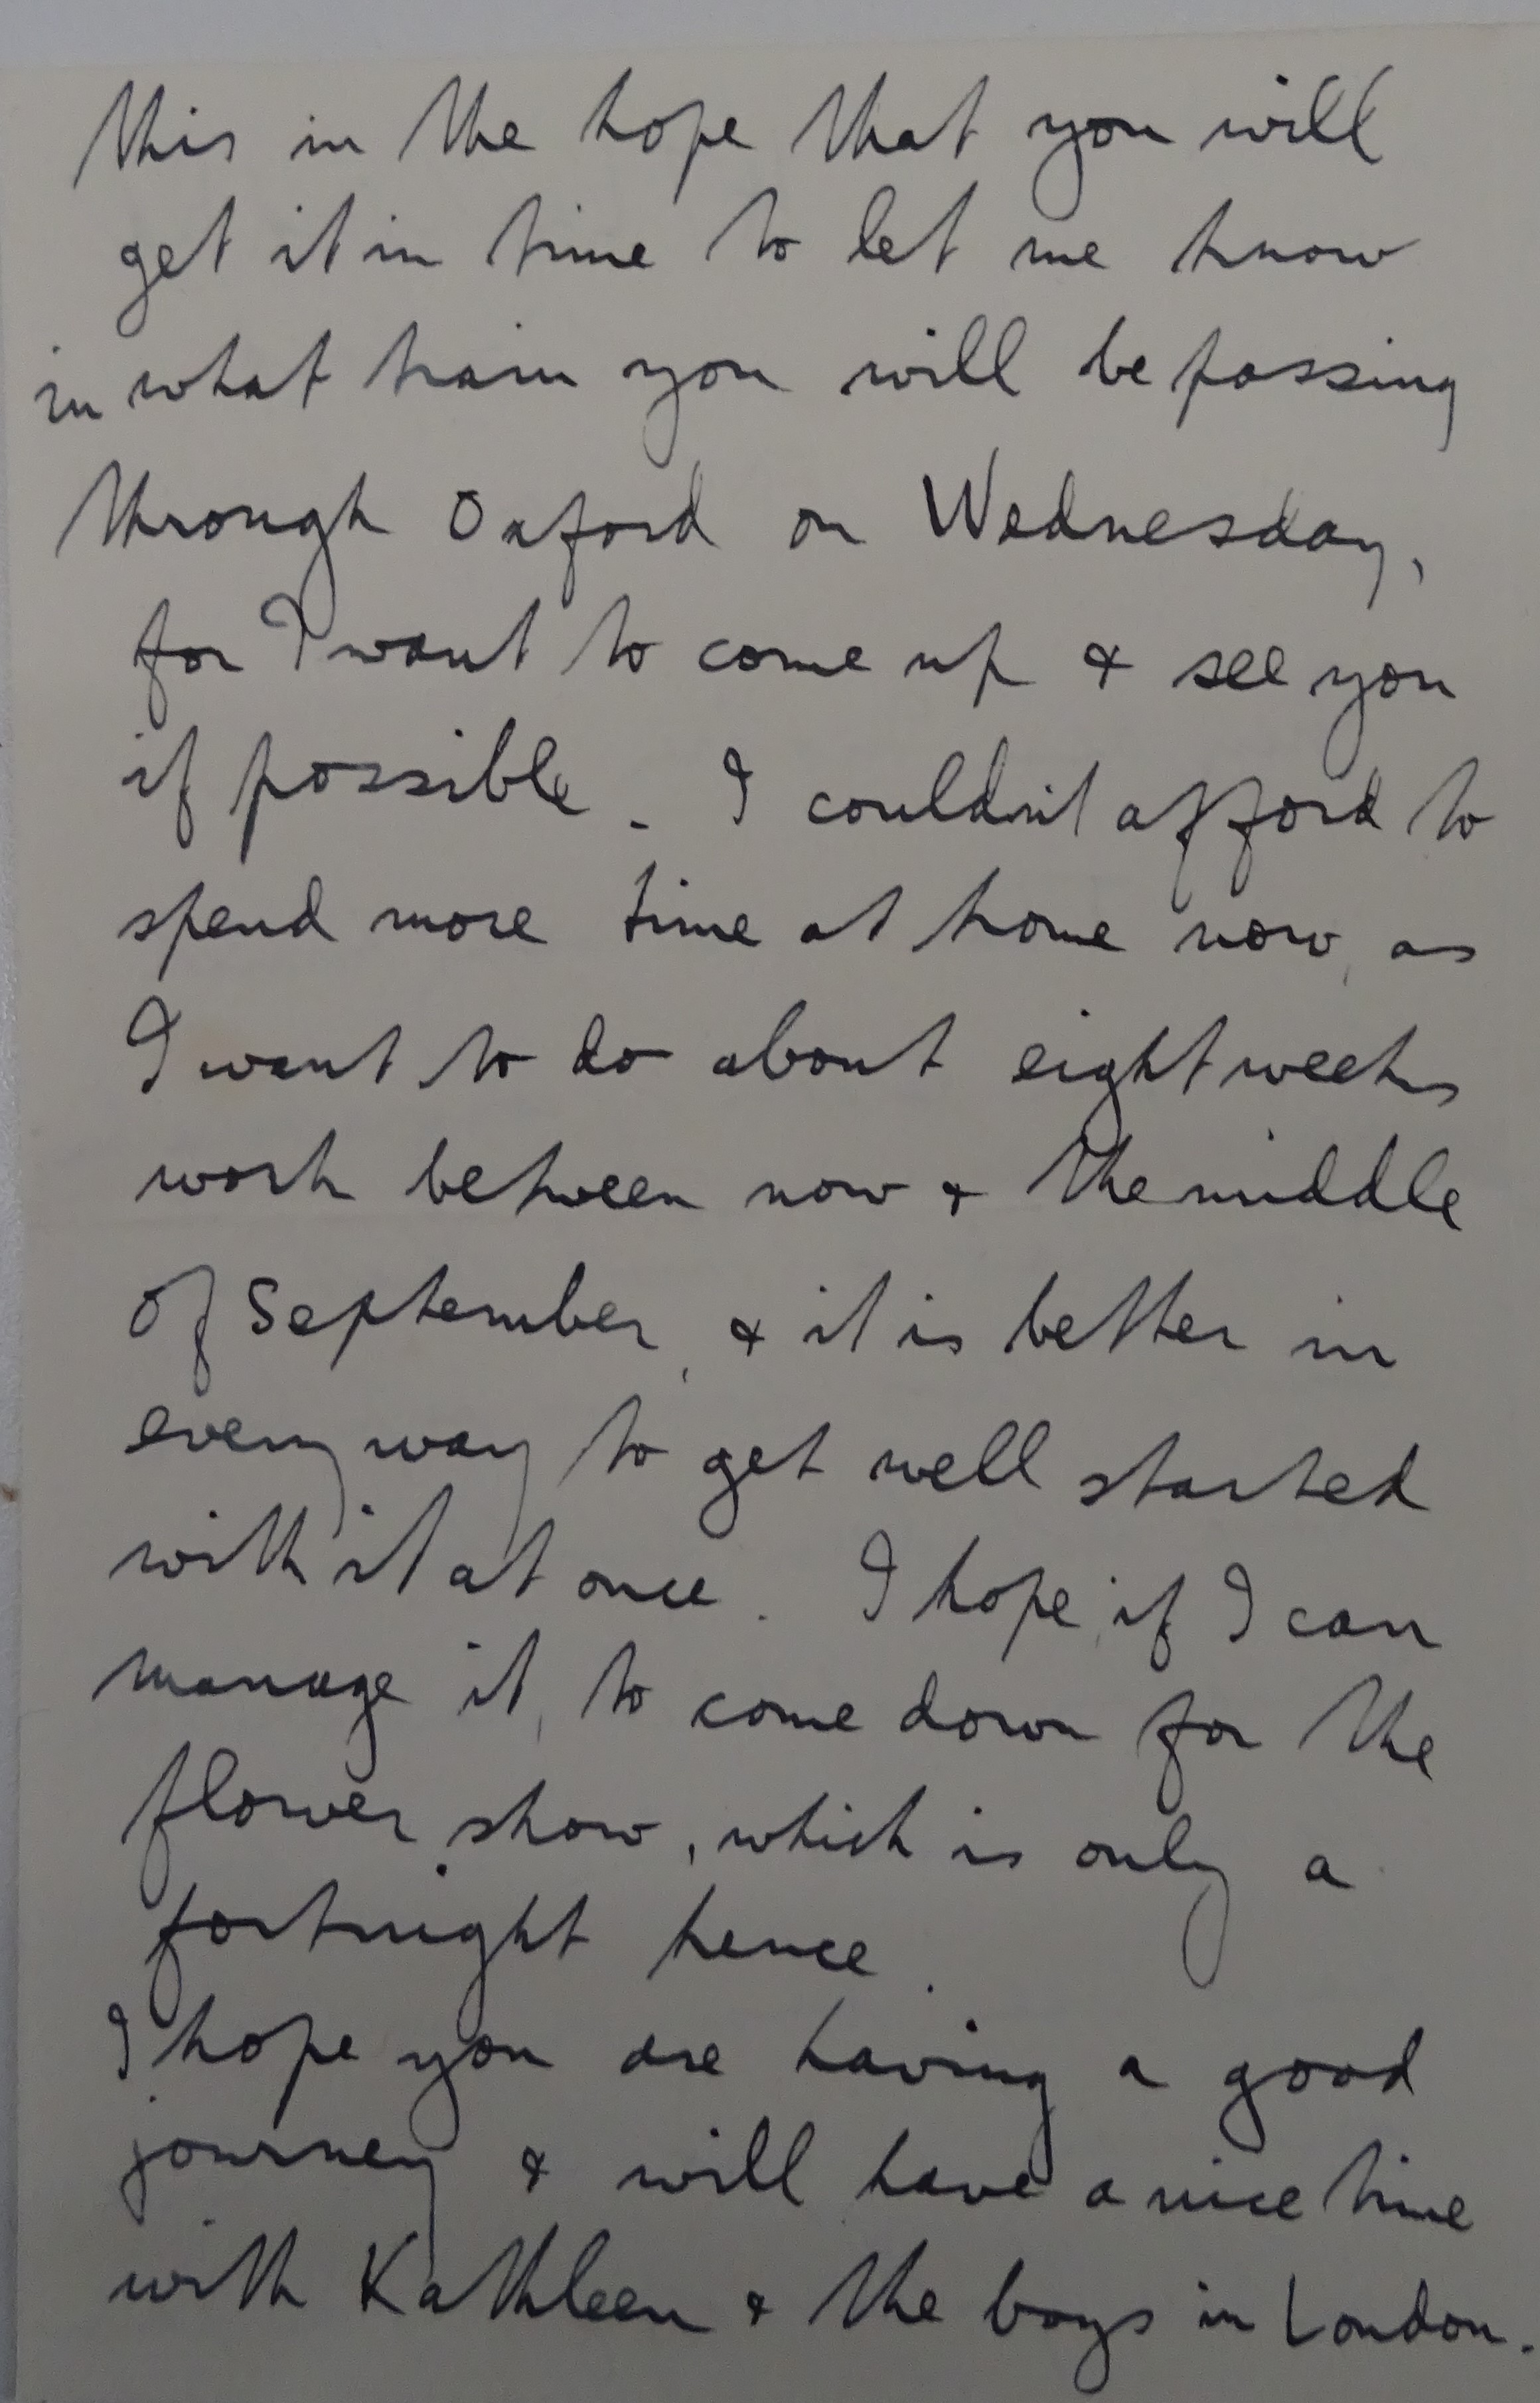 this in the hope that you will
get it in time to let me know
in what train you will be passing
through Oxford on Wednesday,
for I want to come up & see you
if possible. I couldn't afford to
spend more time at home now, as
I want to do about eight weeks
work between now & the middle
of September, & it is better in
every way to get well started
with it at once. I hope, if I can
manage it, to come down for the
flower show, which is only a
fortnight hence.
I hope you are having a good
journey & will have a nice time
with Kathleen & the boys in London.